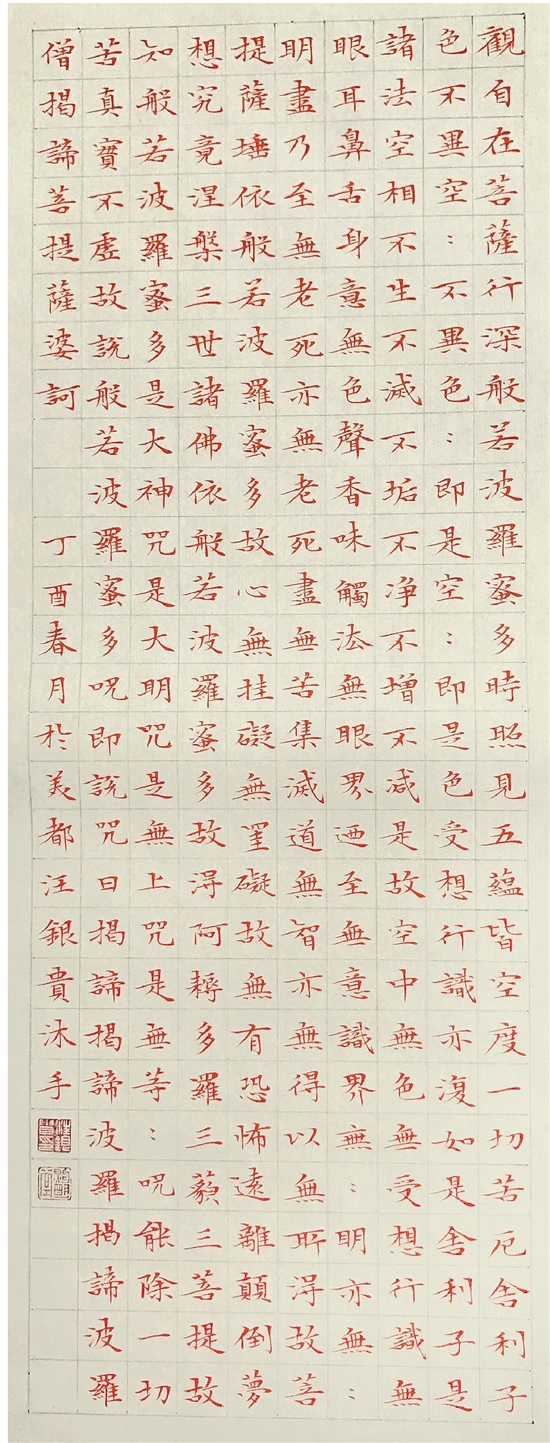 觀自在菩薩行深般若波羅蜜多時照見五蘊皆空度一切苦厄舍利子
色不異空：不異色：即是空：即是色受想行識亦復如是舍利子是
諸法空相不生不滅不垢不净不增不减是故空中無色無受想行識無
眼耳鼻舌身意無色聲香味觸法無眼界迺至無意識界無：明亦無：
明盡乃至無老死亦無老死盡無苦集滅道無智亦無得以無所得故菩
提薩埵依般若波羅蜜多故心無挂礙無罣礙故無有恐怖遠離顛倒夢
想究竟涅槃三世諸佛依般若波羅蜜多故得阿耨多羅三藐三菩提故
知般若波羅蜜多是大神咒是大明咒是無上咒是無等：呪能除一切
苦真實不虛故說般若波羅蜜多呪即說咒曰揭諦揭諦波羅揭諦波羅
僧揭諦菩提薩婆訶 丁酉春月於美都汪銀貴沐手